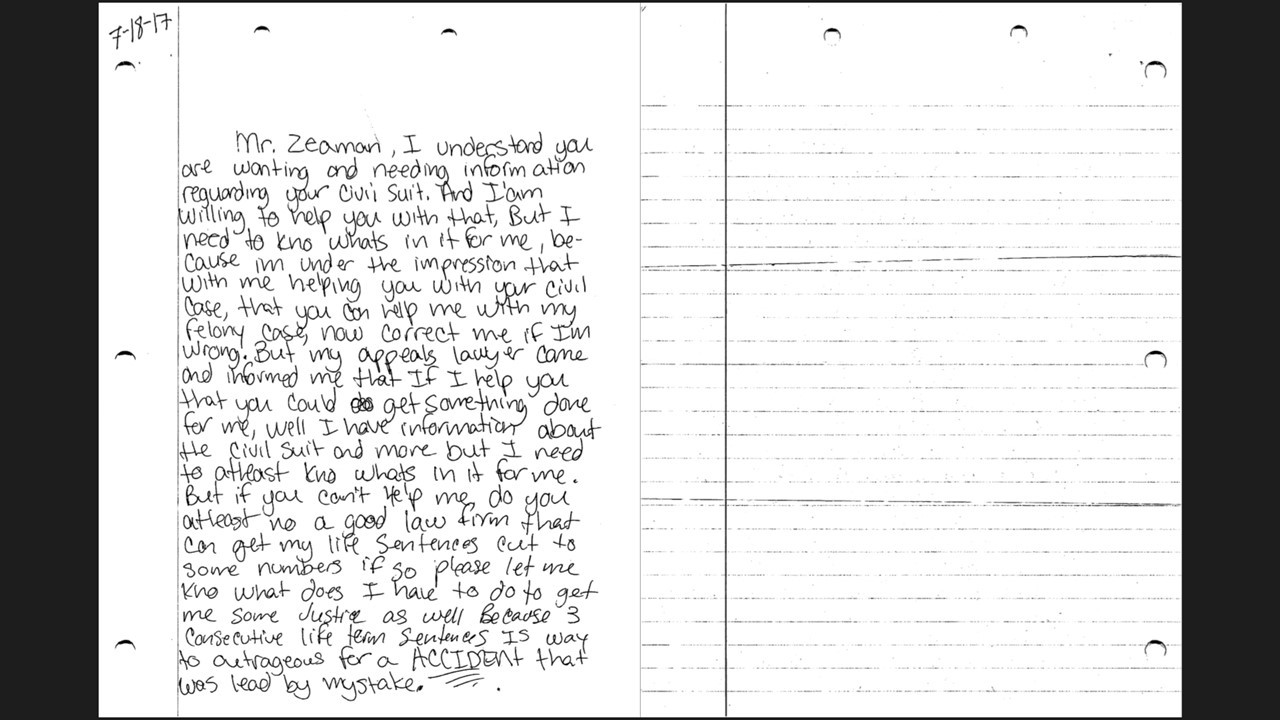 7-18-17
Mr. Zeaman, I understand you
are wanting and needing information
reguarding your Civil Suit. And I'am
willing to help you with that, But I
need to kno whats in it for me, be-
cause im under the impression that
with me helping you with your civil
case, that you can help me with my
felony case, now correct me if I'm
wrong. But my appeals lawyer came
and informed me that If I help you
that you could get something done
for me, well I have information about
the civil Suit and more but I need
to atleast kno whats in it for me.
But if you can't help me, do you
atleast no a good law firm that
can get my life Sentences cut to
some numbers if so please let me
kno what does I have to do to get
me some Justice as well Because 3
Consecutive life term Sentences IS way
to outrageous for a ACCIDENt that
was lead by mystake.